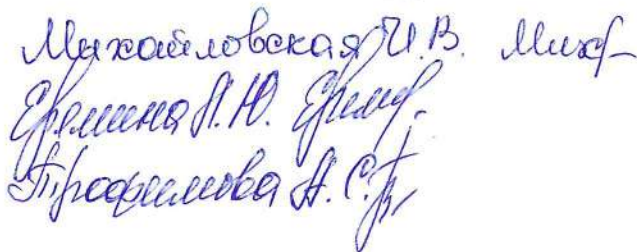 Михайловская И.В. Мих
Еремина Л.Ю. Ерем
Трофимова А.С. Тр